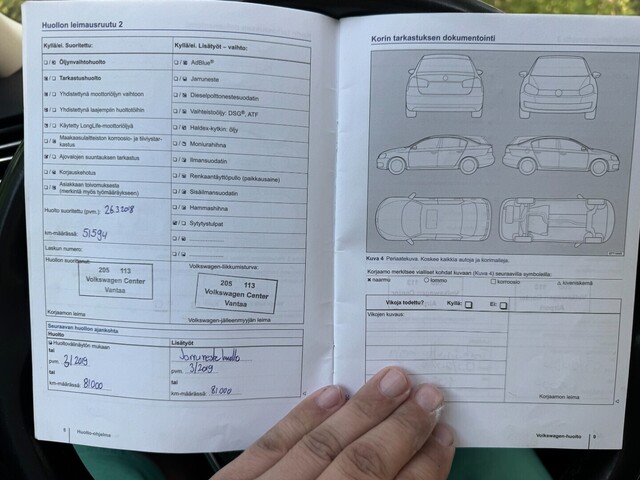 Huollon leimausruutu 2
Kyllä/ei. Suoritettu:
Öljynvaihtohuolto
Tarkastushuolto
Yhdistettynä moottoriöljyn vaihtoon
Yhdistettynä laajempiin huoltotöihin
Käytetty LongLife-moottoriöljyä
Maakaasulaitteiston korroosio- ja tiiviystar-
kastus
Ajovalojen suuntauksen tarkastus
Korjauskehotus
Asiakkaan toivomuksesta
(merkintä myös työmääräykseen)
Huolto suoritettu (pvm.): 26.3.2018
km-määrässä: 51594
Laskun numero:
Huollon suorittanut:
205 113
Volkswagen Center
Vantaa
Korjaamon leima
Kyllä/ei. Lisätyöt – vaihto:
AdBlue®
Jarruneste
Dieselpolttonestesuodatin
Vaihteistoöljy: DSG®, ATF
Haldex-kytkin: öljy
Moniurahihna
Ilmansuodatin
Renkaantäyttöpullo (paikkausaine)
Sisäilmansuodatin
Hammashihna
Sytytystulpat
205 113
Volkswagen Center
Vantaa
Volkswagen-jälleenmyyjän leima
Seuraavan huollon ajankohta
Huolto
Huoltovälinäytön mukaan
tai
pvm: 3/2019
tai
km-määrässä: 81000
Lisätyöt
Jarruneste huolto
pvm: 3/2019
tai
km-määrässä: 81000
8 Huolto-ohjelma
Korin tarkastuksen dokumentointi
Kuva 4 Periaatekuva. Koskee kaikkia autoja ja korimalleja.
Korjaamo merkitsee vialliset kohdat kuvaan (Kuva 4) seuraavilla symboleilla:
× naarmu ○ lommo □ korroosio △ kiveniskemä
Vikoja todettu? Kyllä: Ei:
Vikojen kuvaus:
Korjaamon leima
Volkswagen-huolto 9